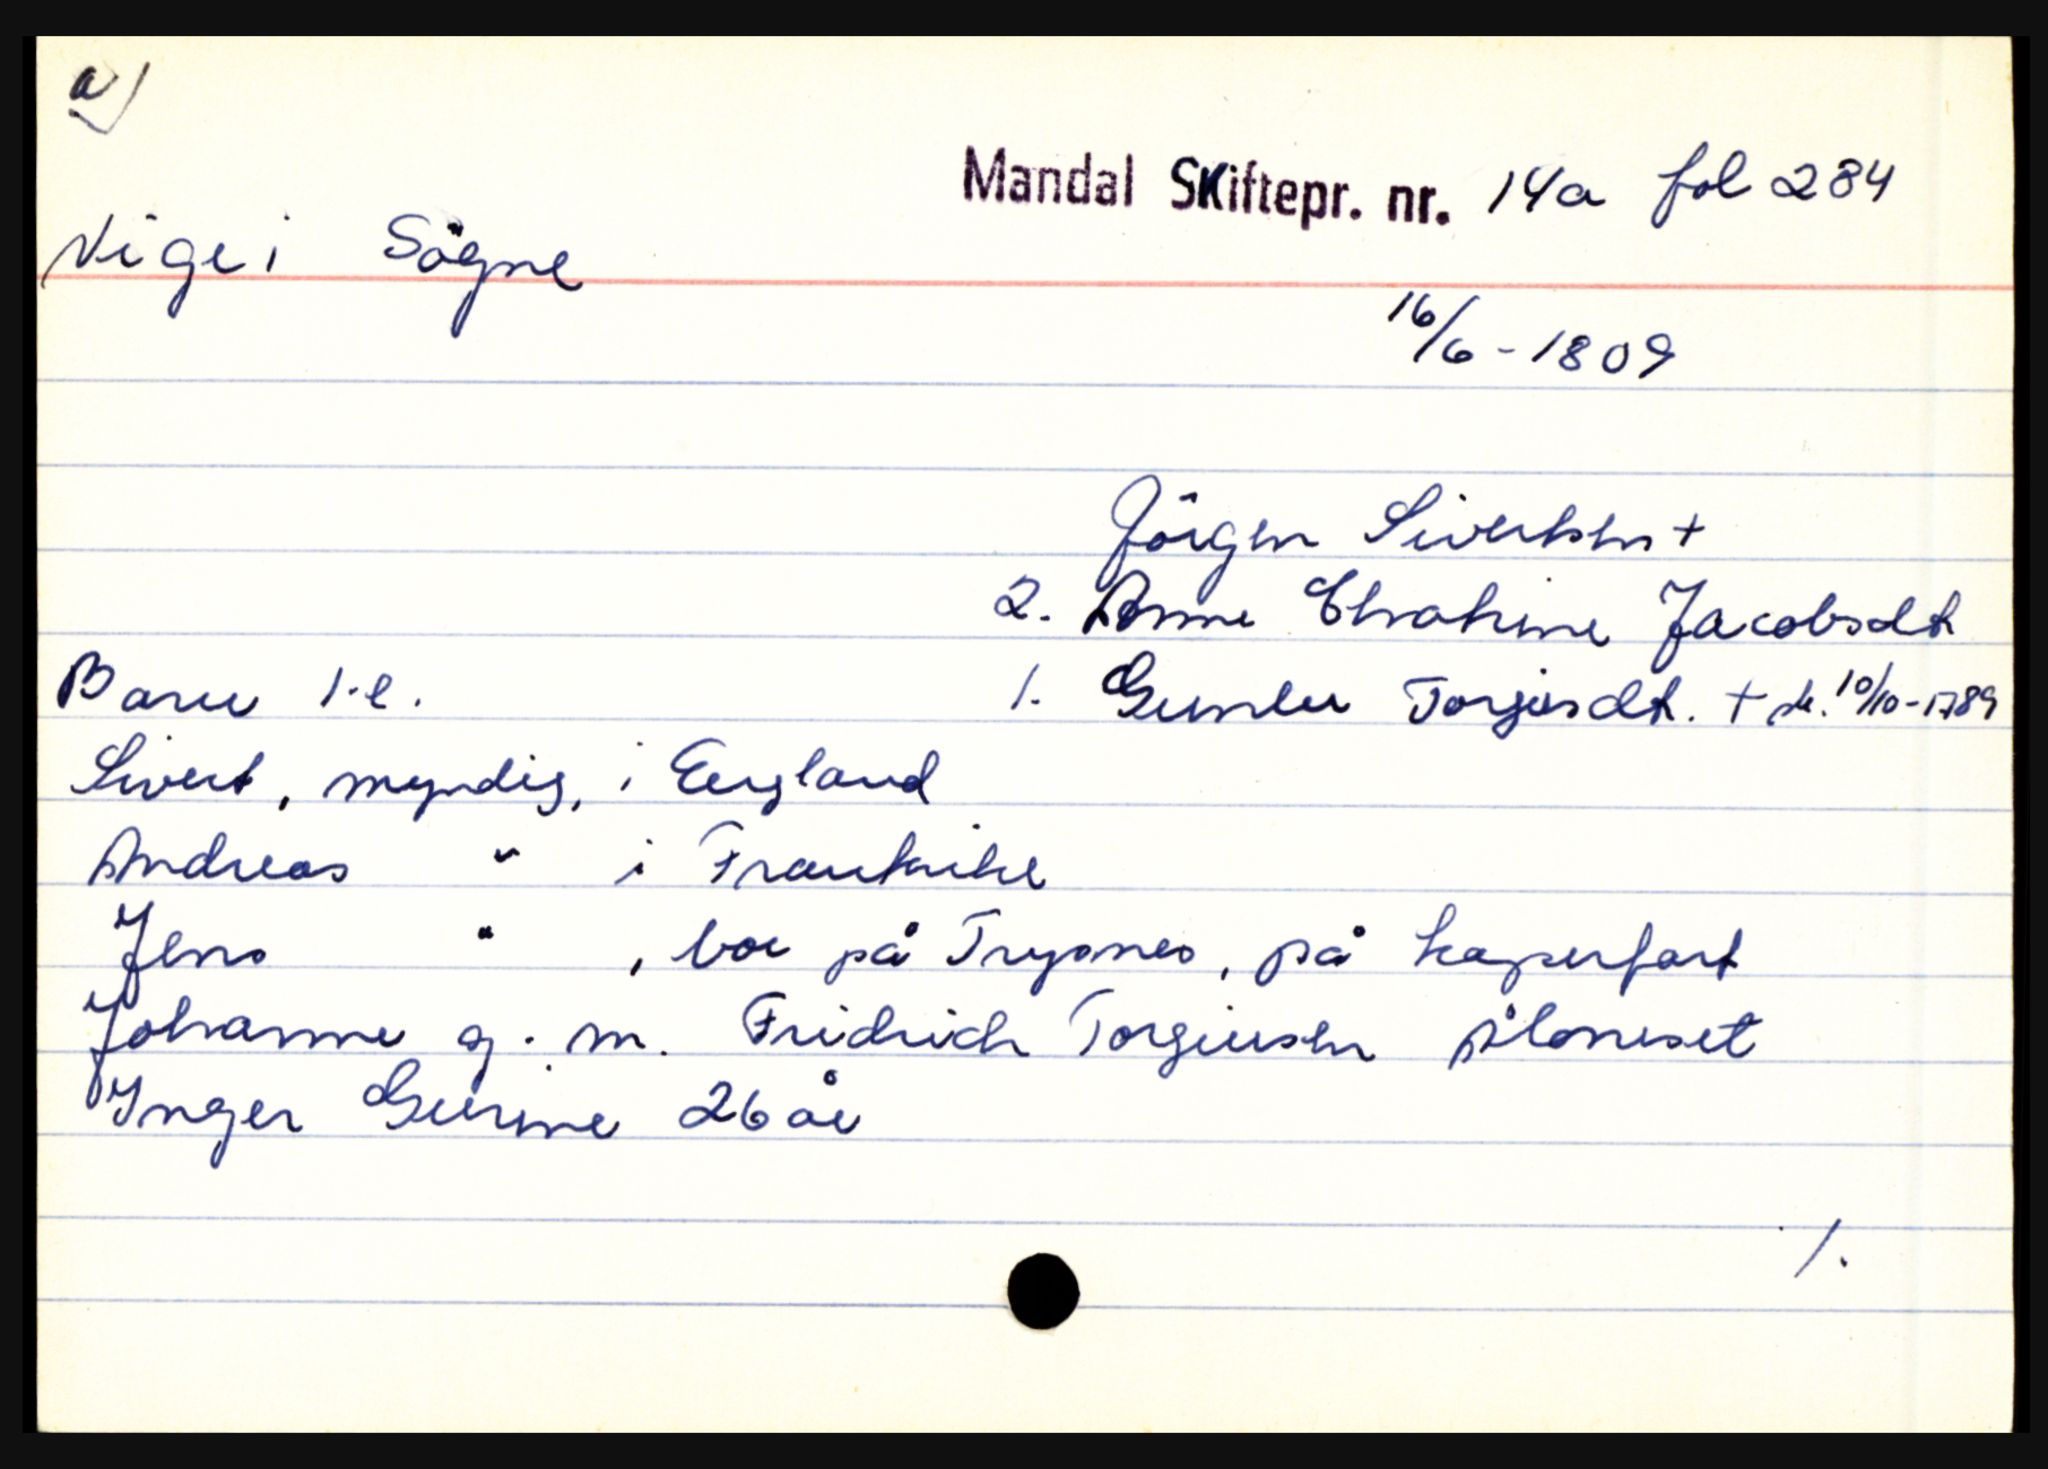 a)
Mandal Skiftepr. nr. 14a fol 284
Vige i Sögne
16/6-1809
Jörgen Sivertsen +
2. Anne Cthrahine Jacobsdt
Barn 1.e. 1. Gunler Torjusdt. + sk. 10/10-1789
Sivert, myndig, i England
Andreas " i Frankrike
Jens " , bor på Trysnes, på kaperfart
Johanne g. m. Fridrich Torgiusen Åloneset
Inger Gurine 26 år
/.